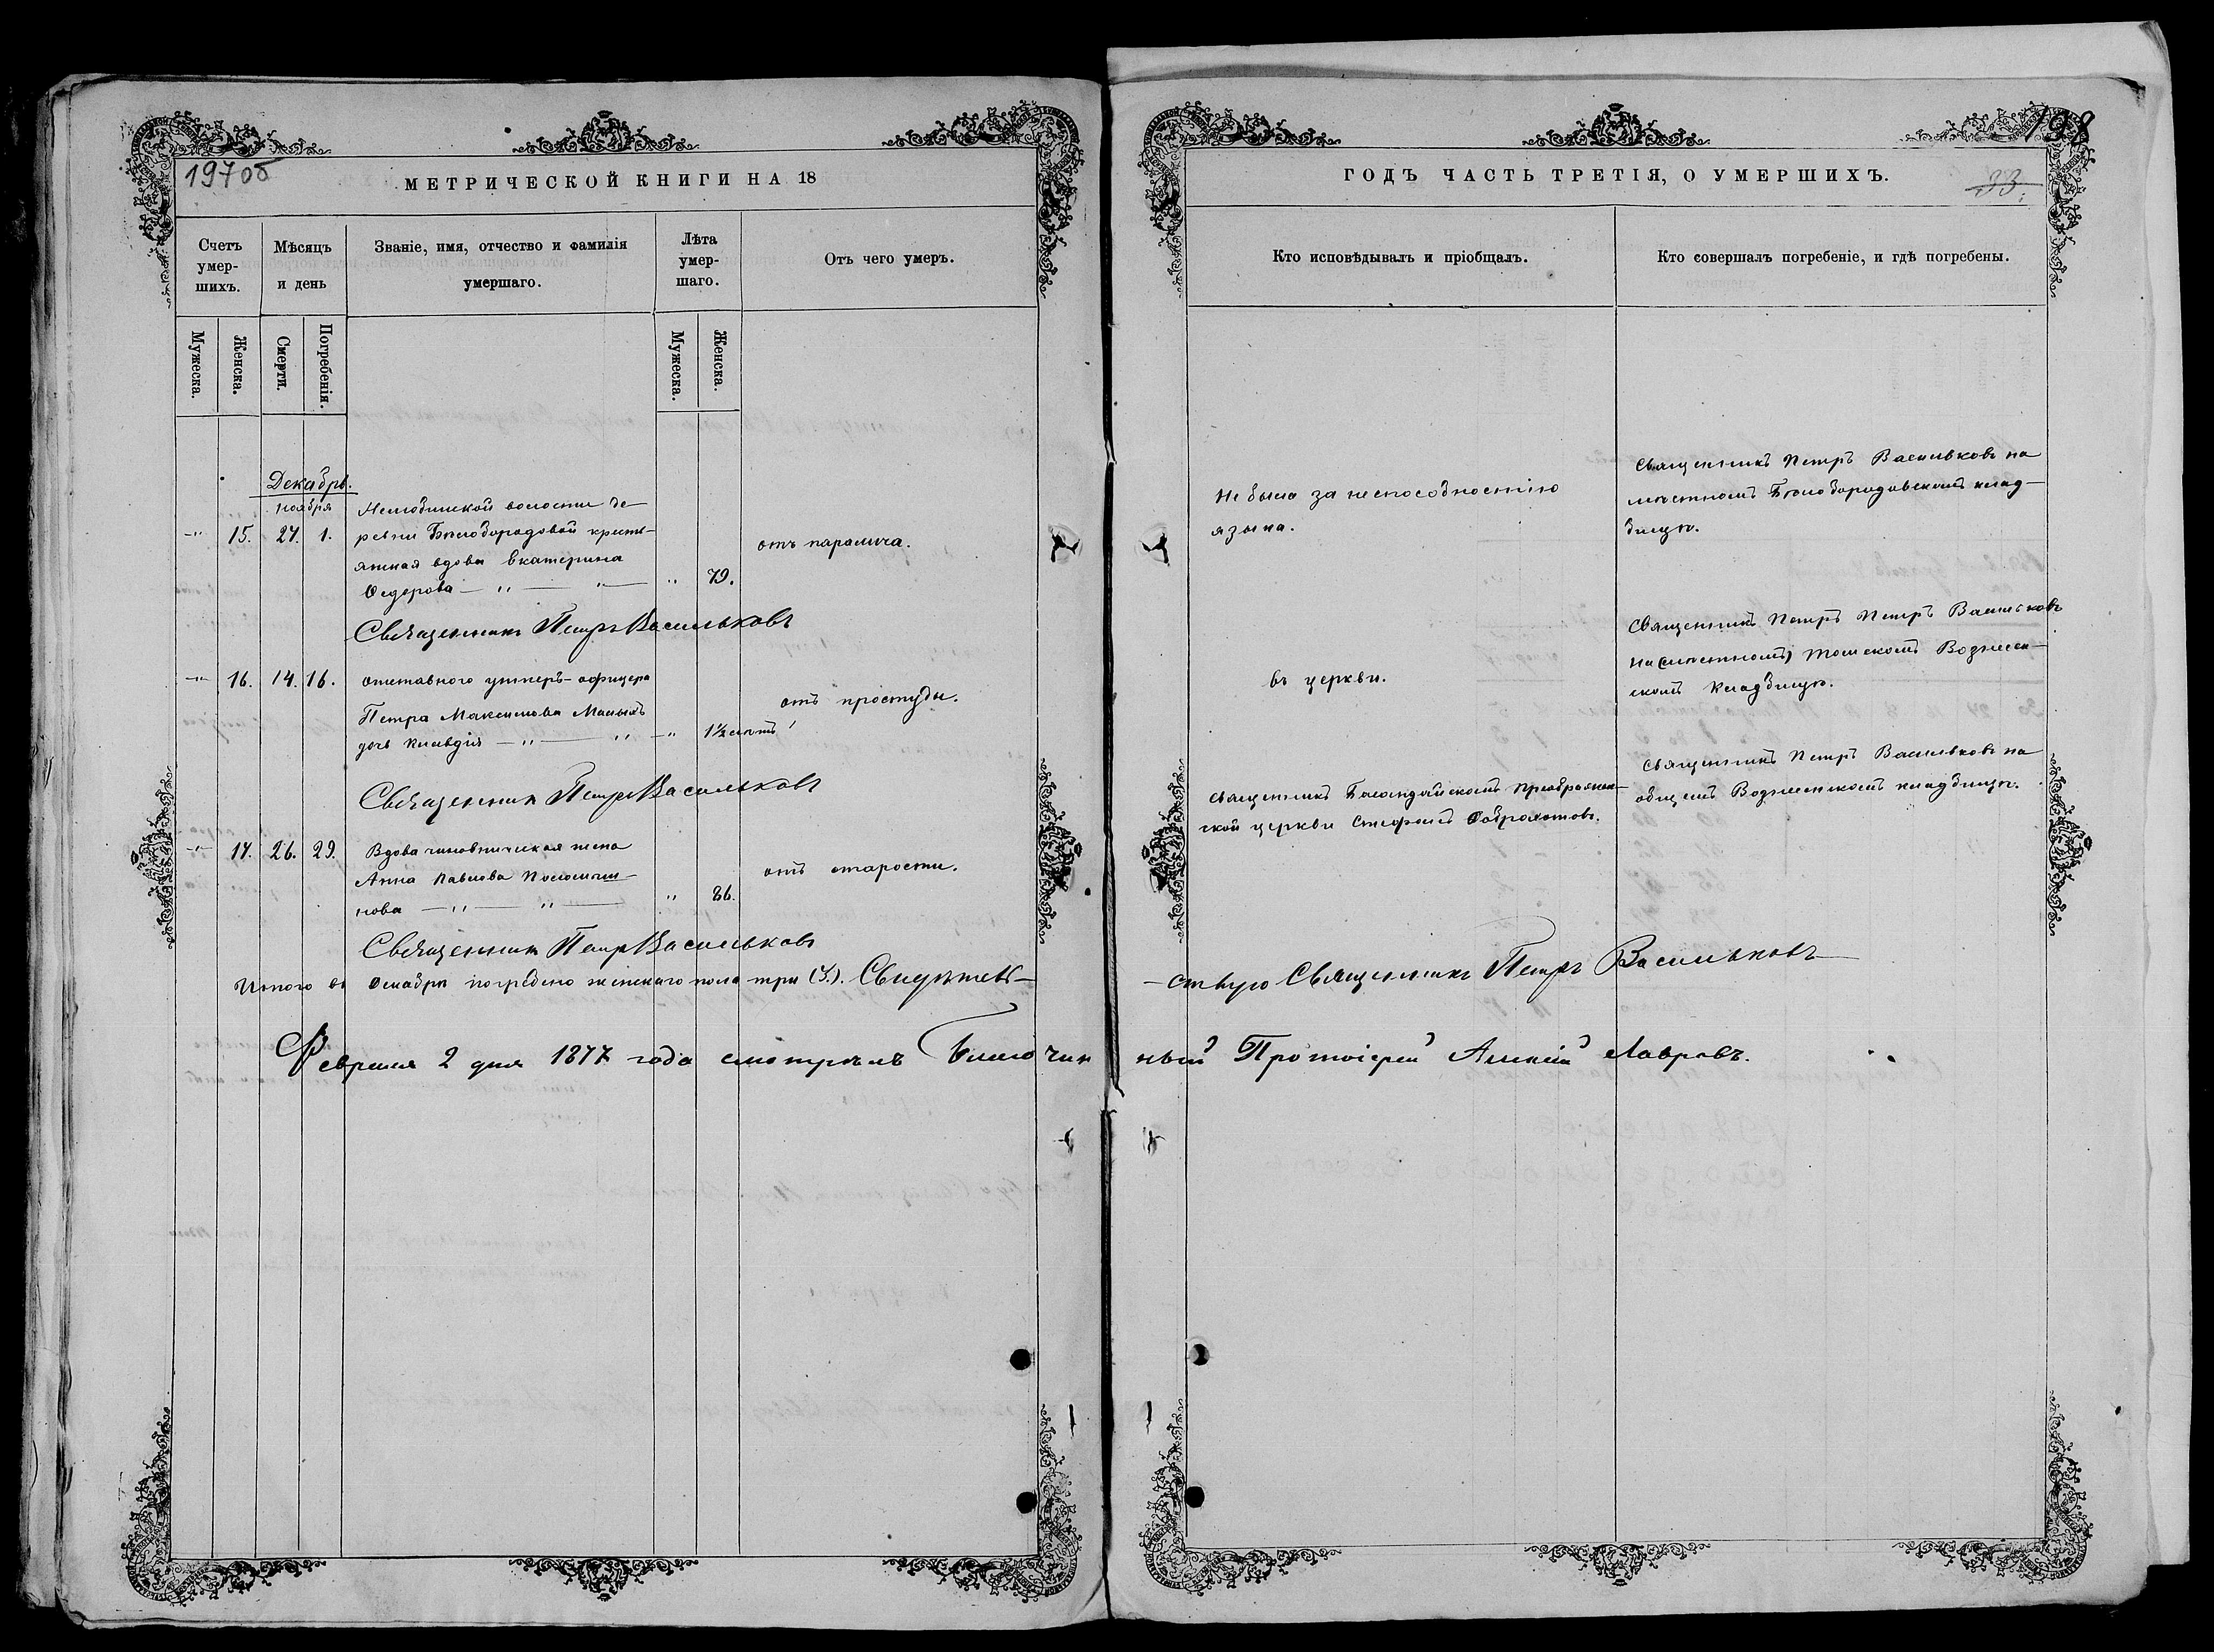 197об
МЕТРИЧЕСКОЙ КНИГИ НА 18
Счетъ умер-шихъ.
Мѣсяцъ и день
Званіе, имя, отчество и фамилія умершаго.
Лѣта умер-шаго.
Отъ чего умеръ.
Мужеска.
Женска.
Смерти.
Погребенія.
Мужеска.
Женска.
Декабрь.
ноября
Нелюбинской волости де-
15. 27. 1. ревни Бѣлобородовой кресть-
янская вдова Екатерина
Ѳедорова — " — " — " 79.
отъ паралича.
Священникъ Петръ Васильковъ
16. 14. 16. отставного унтеръ-офицера
Петра Максимова Малыхъ
дочь Клавдія — " — " — " 1½ лѣтъ
отъ простуды.
Священникъ Петръ Васильковъ
17. 26. 29. Вдова чиновническая жена
Анна Павлова
нова — " — " — " 86.
отъ старости.
Священникъ Петръ Васильковъ
Итого въ Декабрѣ погребено женскаго пола три (3). Свидѣтель-
Февраля 2 дня 1877 года смотрѣлъ Благочин
198
ГОДЪ ЧАСТЬ ТРЕТІЯ, О УМЕРШИХЪ.
33.
Кто исповѣдывалъ и пріобщалъ.
Кто совершалъ погребеніе, и гдѣ погребены.
Не была за неспособностію
языка.
Священникъ Петръ Васильковъ на
мѣстномъ Бѣлобородовскомъ клад-
бищѣ.
въ церкви.
Священникъ Петръ Петръ Васильковъ
на (мѣстномъ) томскомъ Вознесен-
скомъ кладбищѣ.
Священникъ Басандайскомъ Преображен-
ской церкви Стефанъ
Священникъ Петръ Васильковъ на
общемъ Вознесенскомъ кладбищѣ.
-ствую Священникъ Петръ Васильковъ
ный Протоіерей Алексій Лавровъ.